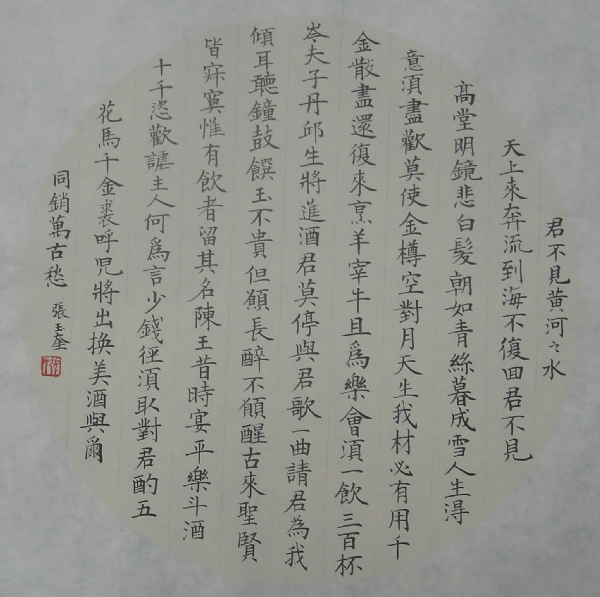 君不見黃河之水
天上來奔流到海不復回君不見
高堂明鏡悲白髮朝如青絲暮成雪人生得
意須盡歡莫使金樽空對月天生我材必有用千
金散盡還復來烹羊宰牛且爲樂會須一飲三百杯
岑夫子丹邱生將進酒君莫停與君歌一曲請君為我
傾耳聽鐘鼓饌玉不貴但願長醉不願醒古來聖賢
皆寂寞惟有飲者留其名陳王昔時宴平樂斗酒
十千恣歡謔主人何爲言少錢徑須取對君酌五
花馬千金裘呼兒將出換美酒與爾
同銷萬古愁 張玉奎